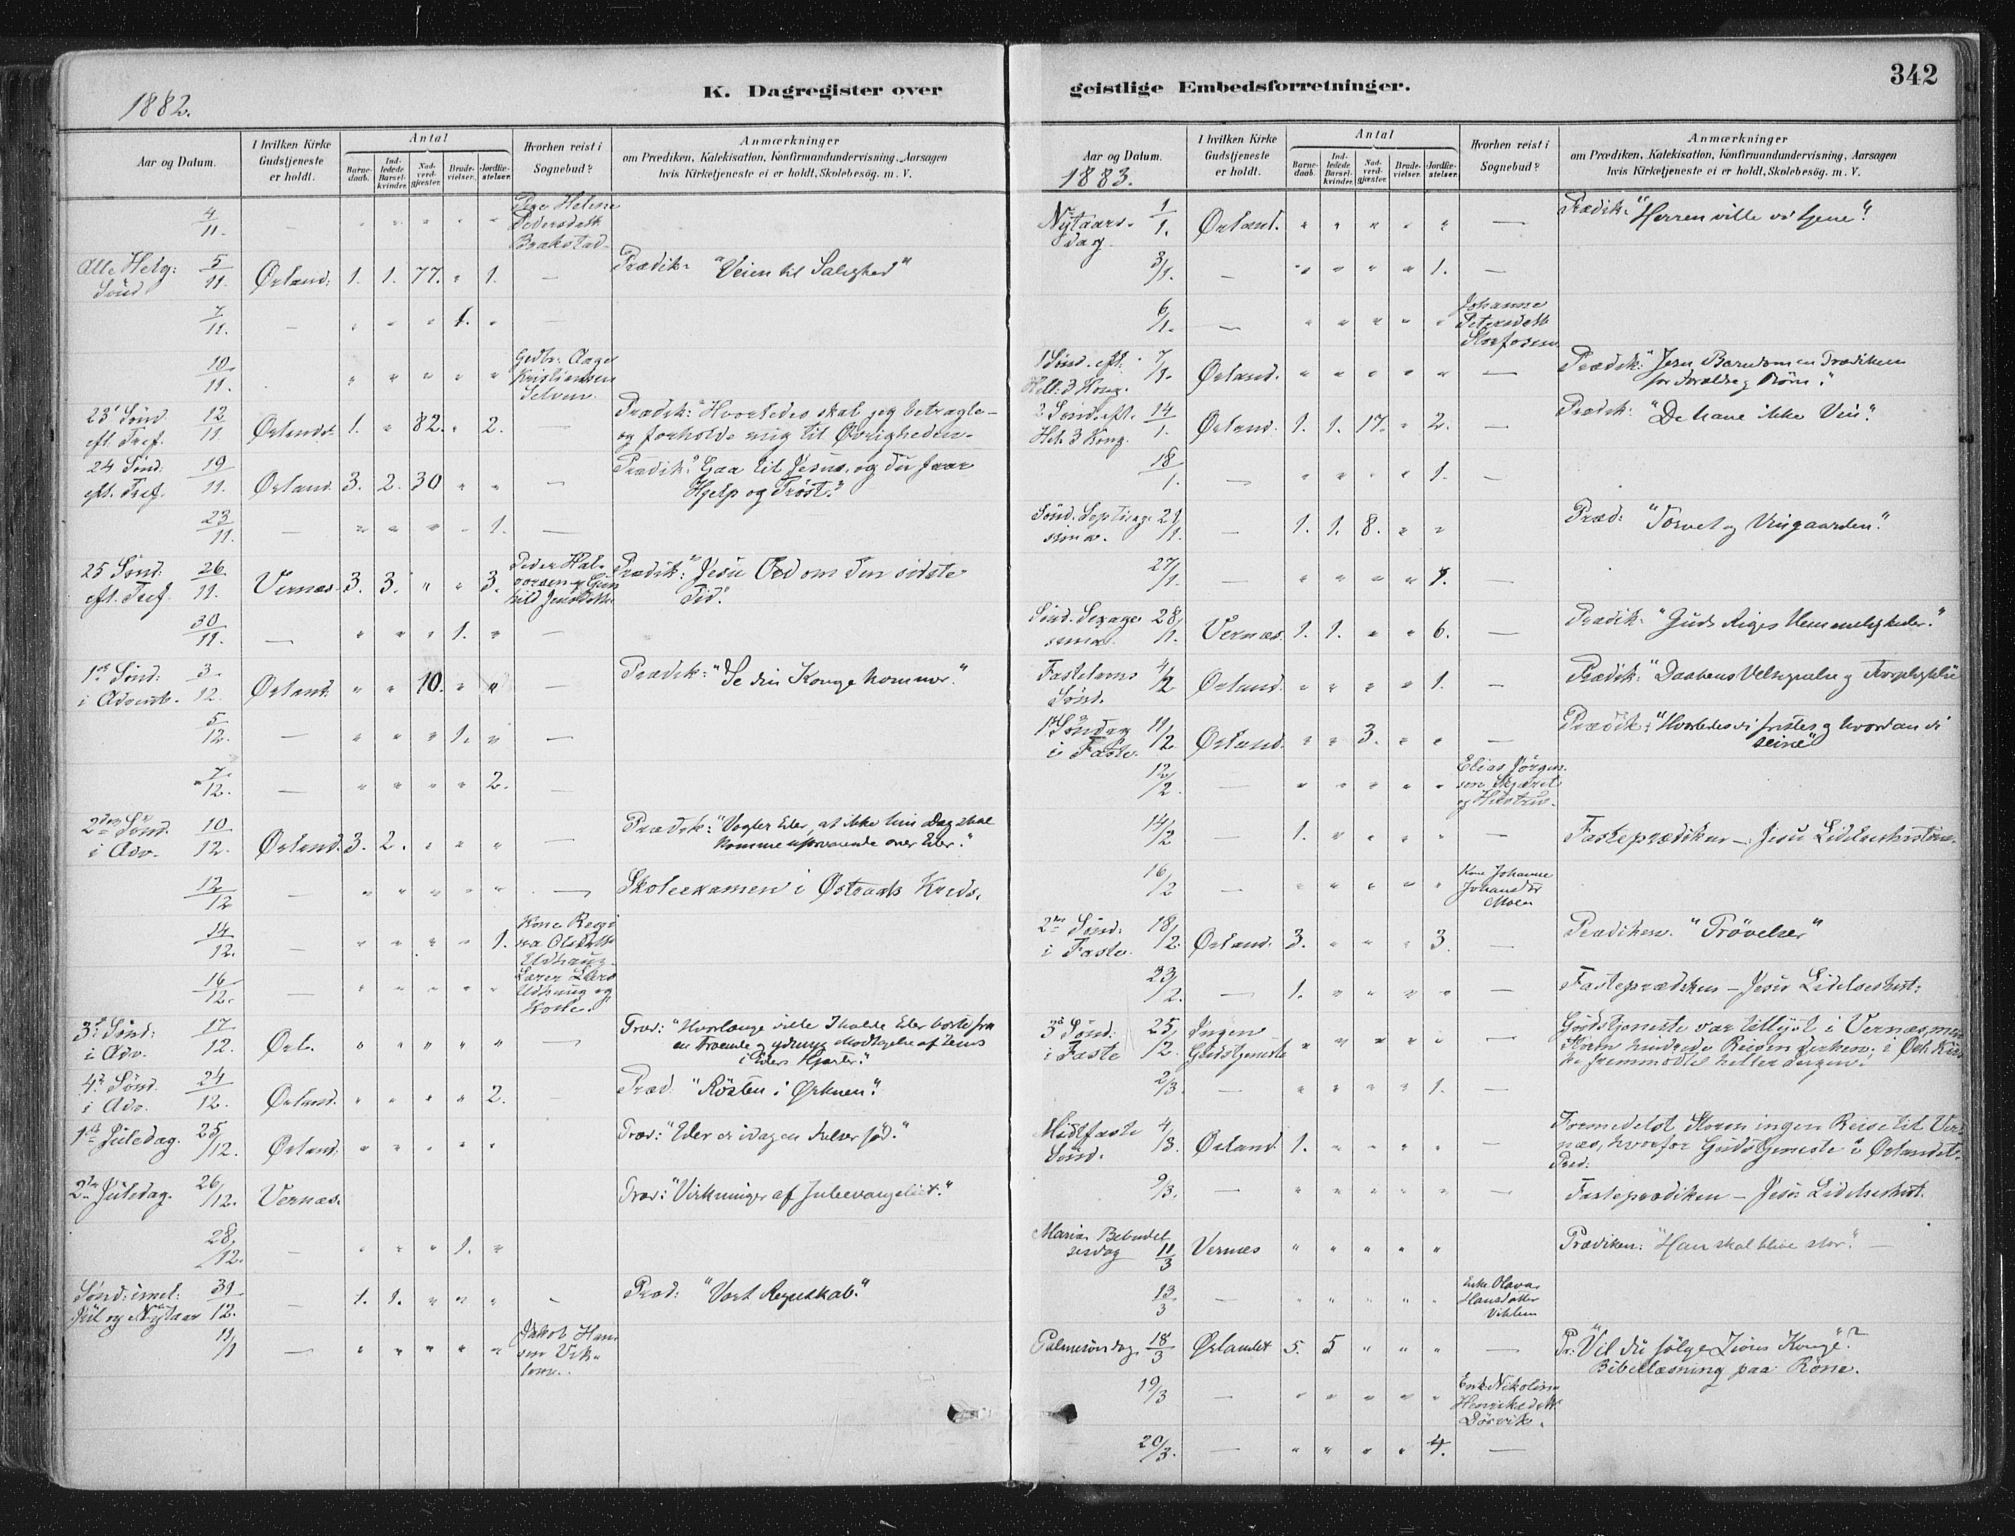 1882.
K. Dagregister over
Aar og Datum.
I hvilken Kirke Gudstjeneste er holdt.
Antal
Barnedaab.
Indledede Barselkvinder.
Nadverdgjæster.
Brudevielser.
Jordfæstelser.
Hvorhen reist i Sognebud?
Anmærkninger
om Prædiken, Katekisation, Konfirmandundervisning, Aarsagen
hvis Kirketjeneste ei er holdt, Skolebesøg. m. V.
4/11. — " " " " " Helene Pedersdatt Brakstad
Alle Helg: Sønd 5/11. Ørland: 1. 1. 77. " 1. — Prædik: "Veien til Salighed"
7/11. — " " " 1. " —
10/11. " " " " " Gedbr: Aage Kristiansen Selven.
23' Sønd eft. Tref. 12/11. Ørlandet. 1. " 82. " 2. — Prædik: "Hvorledes skal jeg betragte
og forholde mig til Øvrigheden.
24 Sønd: eft. Tref. 19/11. Ørland. 3. 2. 30 " " — Prædik: "Gaa til Jesus, og du faar
Hjelp og Trøst."
23/11. — " " " " 1. —
25 Sønd: eft. Tref. 26/11. Vernæs. 3. 3. " " 3. Peder Halvorsen og Gunhild Prædik: "Jesu Ord om den sidste
Tid."
30/11. — " " " 1. " —
1ste Sønd: i Advent. 3/12. Ørland. " " 10. " " — Prædik: "Se din Konge kommer."
5/12. — " " " 1. " —
7/12. — " " " " 2. —
2den Sønd. i Adv. 10/12. Ørland. 3. 2. " " " — Prædik: "Vogter Eder, at ikke hin Dag skal
komme uforvarende over Eder."
12/12 — " " " " " — Skoleexamen i Østraats Kreds.
14/12. — " " " " 1. Kone Regina Olsdatt Udhaug
16/12. — " " " " " Lærer Udhaug og
3d Sønd: i Adv. 17/12. Ørl. " " " " " — Præd: "Hvorlænge ville I holde Eder borte fra
en Troende og ydmyg Modtagelse af Jesus
i Eders Hjerter."
4d Sønd i Adv. 24/12. Ørland. " " " " 2. — Præd "Røsten i Ørknen."
1ste Juledag. 25/12. Ørland. " " " " " Præd: "Eder er idag en Frelser fød."
2den Juledag. 26/12. Vernæs. Præd: "Virkninger af Juleevangeliet."
28/12. — " " " 1. "
Sønd: imel: Jul og Nytaar 31/12. — 1. 1. " " " " Præd: "Vort Regnskab."
11/1 — " " " " " Jakob Hansen
342
geistlige Embedsforretninger.
Aar og Datum.
1883.
I hvilken Kirke Gudstjeneste er holdt.
Antal
Barnedaab.
Indledede Barselkvinder.
Nadverdgjæster.
Brudevielser.
Jordfæstelser.
Hvorhen reist i Sognebud?
Anmærkninger
om Prædiken, Katekisation, Konfirmandundervisning, Aarsagen
hvis Kirketjeneste ei er holdt, Skolebesøg. m. V.
Nytaarsdag 1/1. Ørland. " " " " " — Prædik: "Herren ville vi tjene".
3/1. — " " " " 1. —
6/1. — " " " " " Johanne Petersdatt Storfosen
1 Sønd. eft. Hell. 3 Kong. 7/1. Ørland. " " " " " — Prædik: "Jesu Barndom en Prædiken
for Forældre og Børn".
2 Sønd. eft. Hel. 3 Kong. 14/1. Ørland. 1. 1. 17. " 2. — Prædik: "De have ikke Vin."
18/1. — " " " " 1. —
Sønd. Septuagesima. 21/1. — 1. 1. 8. " " Præd: "Torvet og Vingaarden."
27/1. — " " " " 1. —
Sønd. Sexagesima 28/1. Vernæs. 1. 1. " " 6. — Prædik: "Guds Riges Hemmeligheder."
Fastelavns Sønd. 4/2 Ørland. " " " " 1. — Prædik: "Daabens Velsignelse og Forpligtelse
1ste Søndag i Faste. 11/2 Ørland. " " 3. " " — Prædik: "Hvorledes vi fristes og hvordan vi
seire"
12/2. — " " " " " Elias Jørgensen
14/2 — 1. " " " " — Fasteprædiken — Jesu Lidelseshistorie.
16/2 — " " " " " Kone Johanne
2den Sønd: i Faste. 18/2. Ørland. 3. " " " 3. — Prædiken. "Prøvelser"
23/2. — 1. " " " " — Fasteprædiken — Jesu Lidelseshist:
3d Sønd: i Faste 25/2. Ingen Gudstjeneste " " " " " — Gudstjeneste var tillyst i Vernæs, men
Storm hindrede Reisen
2/3. — " " " " 1. —
Midtfaste Sønd. 4/3. Ørland 1. " " " " — Formedelst Storm ingen Reise til Vernæs,
hvorfor Gudstjeneste i Ørlandet.
Præd:
9/3. — " " " " " — Fasteprædiken — Jesu Lidelseshist.
Mariæ Bebudelsesdag 11/3 Vernæs " " " " " Prædiken: "Han skal blive stor". —
13/3 — " " " " " Enke Olava Hansdatter Viklem
Palmesøndag 18/3 Ørlandet 5. 5 " " " — Pr: "Vil du følge Zions Konge?"
Bibellæsning paa Røne.
19/3 — " " " " " Enke Nikoline Henriksdatt.
20/3. — " " " " 4. —